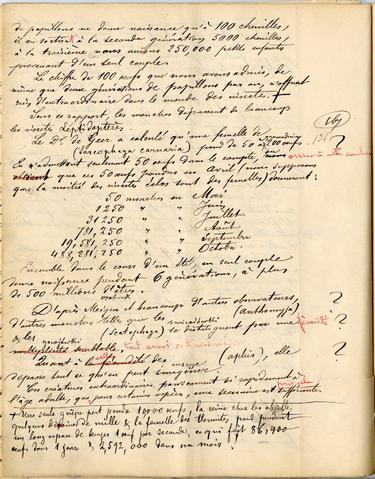 de papillons ne donne naissance qu'à 100 chenilles,
il en sortirait à la seconde génération 5000 chenilles,
à la troisième nous aurions 250,000 petits enfants
provenant d'un seul couple.
Le chiffre de 100 œufs que nous avons admis, de
même que deux générations de papillons par an, n'offrent
rien d'extraordinaire dans le monde des insectes.
Sous ce rapport, les mouches dépassent de beaucoup
les insectes Lepidoptères.
Le Dr de Geer a calculé qu'une femelle de
(Sarcophaga carnaria) pond de 50 à 200 œufs.
En n'admettant seulement 50 œufs dans le compte,
que ces 50 œufs pondus en Avril (nous supposons
que la moitié des insectes éclos sont des femelles) donneront:
50 mouches en Mai
1250 " " Juin
31250 " " Juillet
781,250 " " Août
19,531,250 " " Septembre
488,281,250 " " Octobre.
Ensemble dans le cours d'un été, un seul couple
donne naissance pendant 6 générations, à plus
de 500 millions d'êtres.
D'après Meigen et beaucoup d'autres observateurs,
d'autres mouches telles que les (anthomyia)
& les (Scatophaga) se distinguent par une fécondité
tout aussi
Quant à la dite des (aphis), elle
dépasse tout ce qu'on peut imaginer.
Ces créatures extraordinaires parviennent si rapidement à
l'âge adulte, que pour certaines espèces, une semaine est suffisante.
+ Une seule guêpe peut pondre 10000 œufs, la reine chez les abeilles,
quelques dizaines de mille & la femelle des Thermites, peut pendant
un long espace de temps 1 œuf par seconde, ce qui fait 86,400
œufs dans 1 jour & 2,592,000 dans un mois.